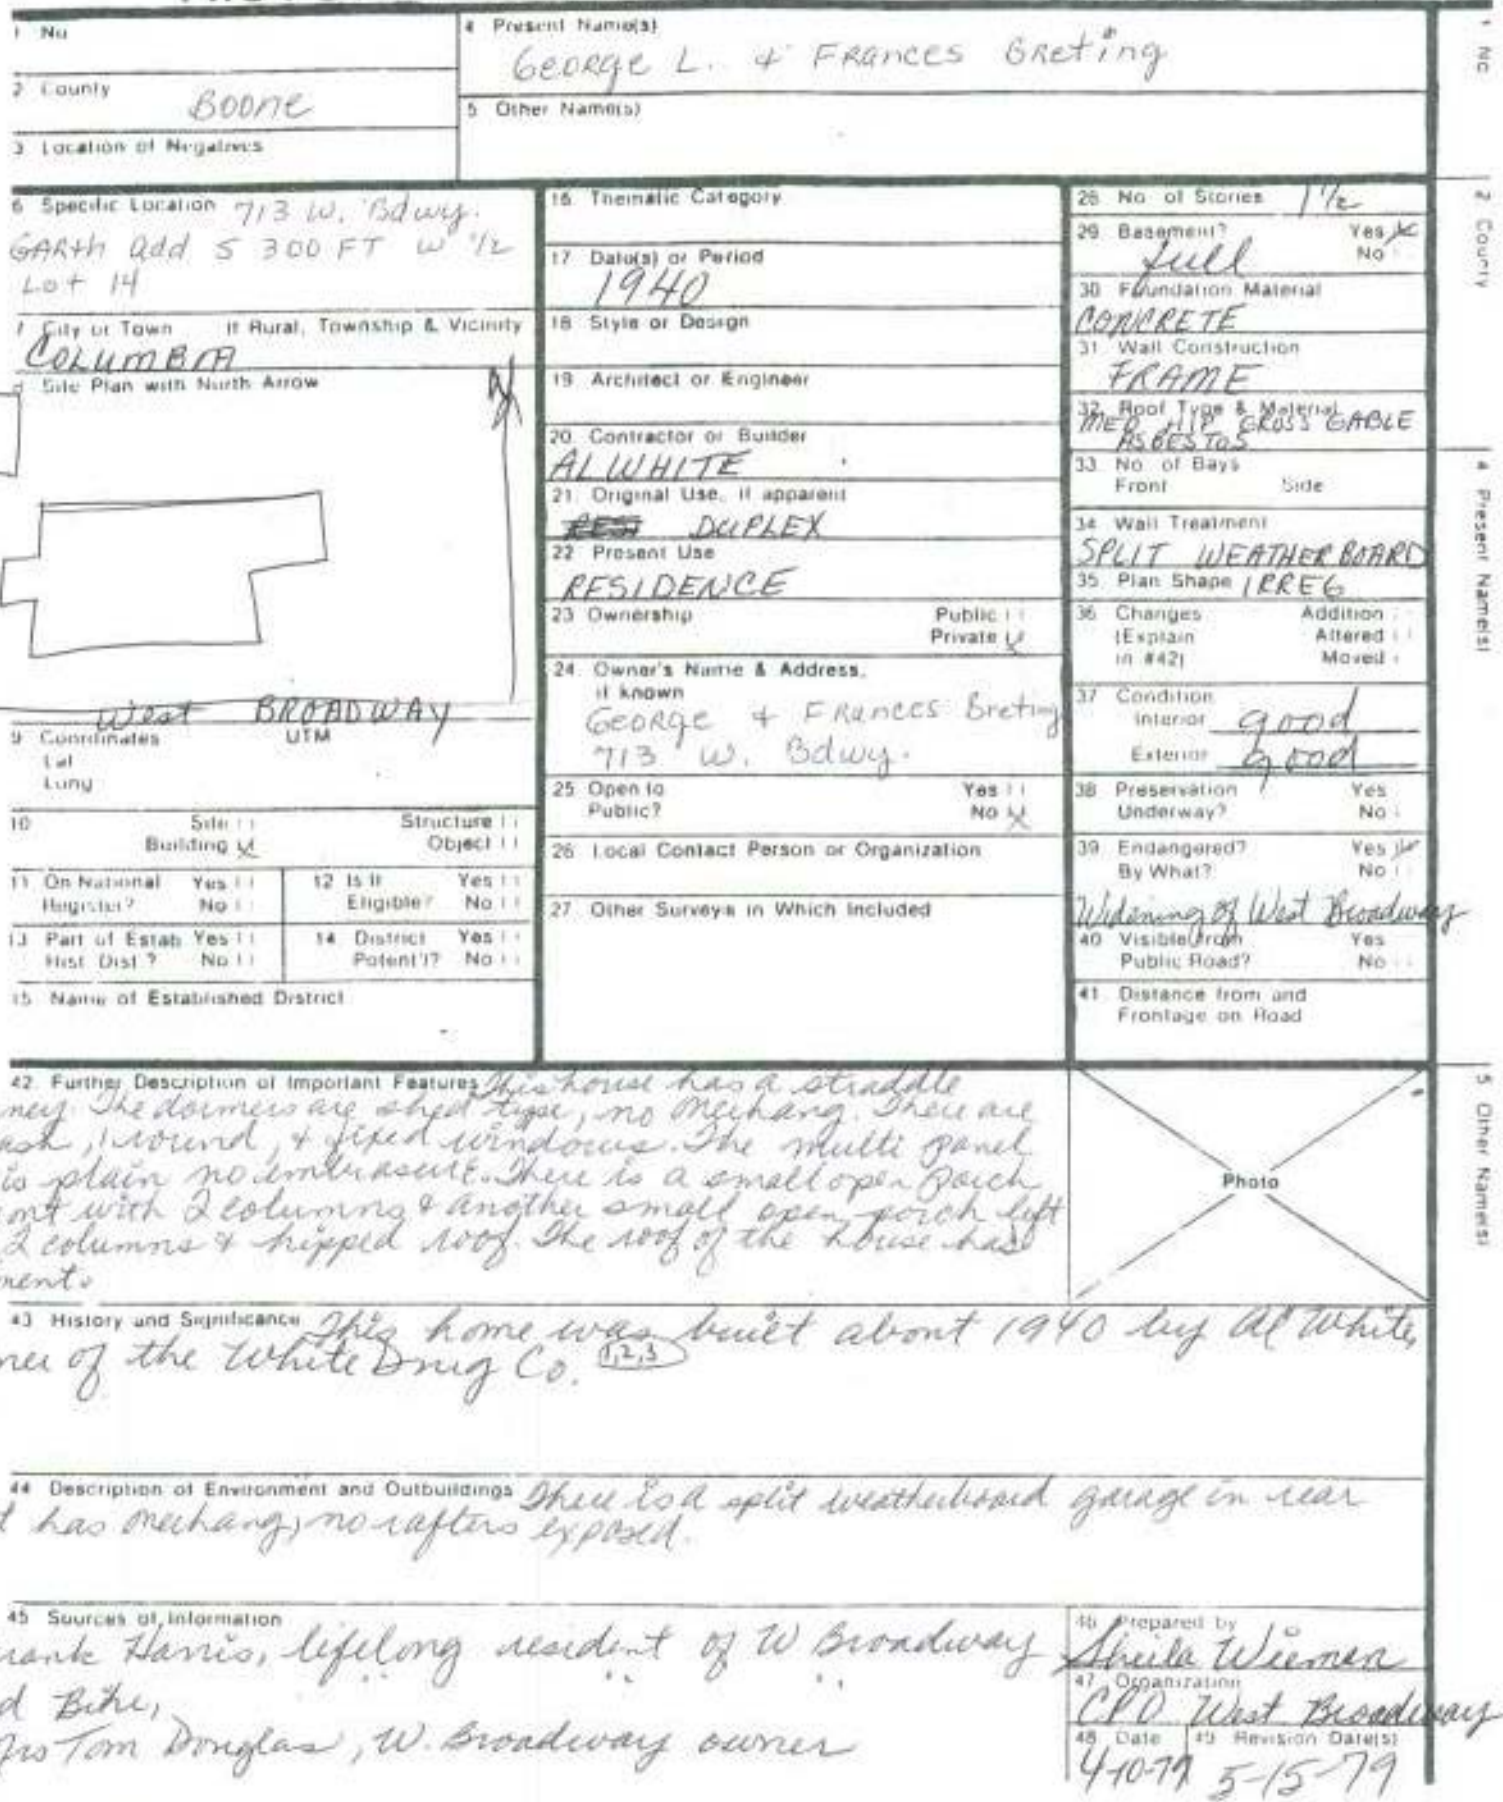 1 No
4 Present Name(s)
George L. & Frances Greting
2 County
Boone
5 Other Name(s)
3 Location of Negatives
6 Specific Location 713 W. Bdwy.
GARth add S 300 FT W 1/2
Lot 14
7 City or Town If Rural, Township & Vicinity
COLUMBIA
8 Site Plan with North Arrow
West BROADWAY
9 Coordinates UTM
Lat
Long
10 Site Structure
Building Object
11 On National Register? Yes No
12 Is It Eligible? Yes No
13 Part of Estab Hist Dist? Yes No
14 District Potent'l? Yes No
15 Name of Established District
16 Thematic Category
17 Date(s) or Period
1940
18 Style or Design
19 Architect or Engineer
20 Contractor or Builder
AL WHITE
21 Original Use, if apparent
DUPLEX
22 Present Use
RESIDENCE
23 Ownership Public
Private
24 Owner's Name & Address,
if known
George & Frances Breting
713 W. Bdwy.
25 Open to Public? Yes
No
26 Local Contact Person or Organization
27 Other Surveys in Which Included
28 No. of Stories 1 1/2
29 Basement? Yes
full No
30 Foundation Material
CONCRETE
31 Wall Construction
FRAME
32 Roof Type & Material
MED HIP CROSS GABLE
ASBESTOS
33 No. of Bays
Front Side
34 Wall Treatment
SPLIT WEATHERBOARD
35 Plan Shape IRREG
36 Changes Addition
(Explain Altered
in #42) Moved
37 Condition
Interior good
Exterior good
38 Preservation Yes
Underway? No
39 Endangered? Yes
By What? No
Widening of West Broadway
40 Visible from Yes
Public Road? No
41 Distance from and
Frontage on Road
42 Further Description of Important Features This house has a straddle
ney. The dormers are shed type, no overhang. There are
ash, 1 round, & fixed windows. The multi panel
is plain no embrasure. There is a small open porch
ont with 2 columns & another small open porch left
2 columns & hipped roof. The roof of the house has
ment.
Photo
43 History and Significance This home was built about 1940 by Al White,
ner of the White Drug Co. 1,2,3
44 Description of Environment and Outbuildings There is a split weatherboard garage in rear
t has overhang, no rafters exposed.
45 Sources of Information
rank Harris, lifelong resident of W Broadway
d Bihr, " " "
rs Tom Douglas, W. Broadway owner
46 Prepared by
Sheila Wieman
47 Organization
CPO West Broadway
48 Date 49 Revision Date(s)
4-10-79 5-15-79
1 No
2 County
4 Present Name(s)
5 Other Name(s)